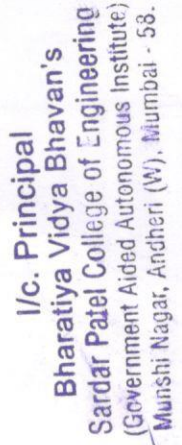 I/c. Principal
Bharatiya Vidya Bhavan's
Sardar Patel College of Engineering
(Government Aided Autonomous Institute)
Munshi Nagar, Andheri (W), Mumbai - 58.